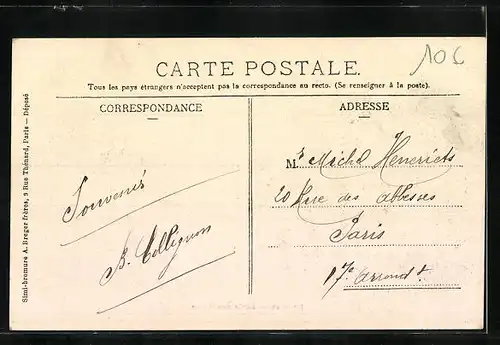 10 c
CARTE POSTALE.
Tous les pays étrangers n'acceptent pas la correspondance au recto. (Se renseigner à la poste).
CORRESPONDANCE
ADRESSE
Simi-bromure A. Breger Frères, 9 Rue Thénard, Paris — Déposé
Souvenirs
B. Collignon
M.r Michel Henriets
20 Rue des abbesses
Paris
17e arrondt.